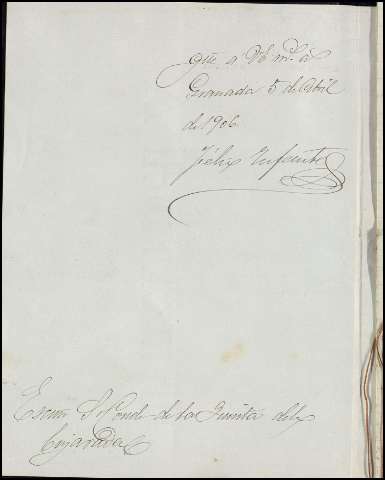 gde. a V.E. ms. as.
Granada 5 de Abril
de 1906
Félix Infante
Excmo Sr Conde de la Quinta de la
Enjarada